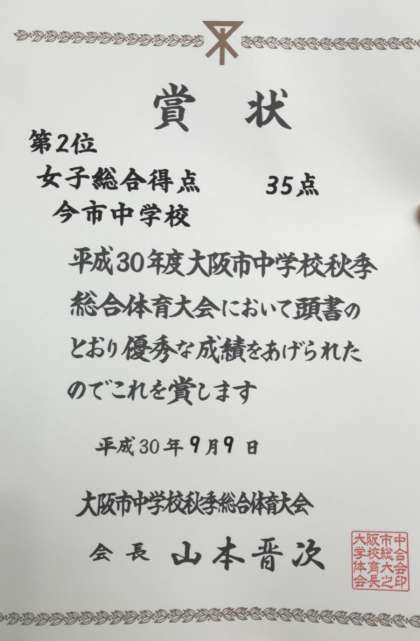 賞状
第2位
女子総合得点 35点
今市中学校
平成30年度大阪市中学校秋季
総合体育大会において頭書の
とおり優秀な成績をあげられた
のでこれを賞します
平成30年9月9日
大阪市中学校秋季総合体育大会
会長 山本晋次
大阪市中
学校総合
体育大会
会長之印